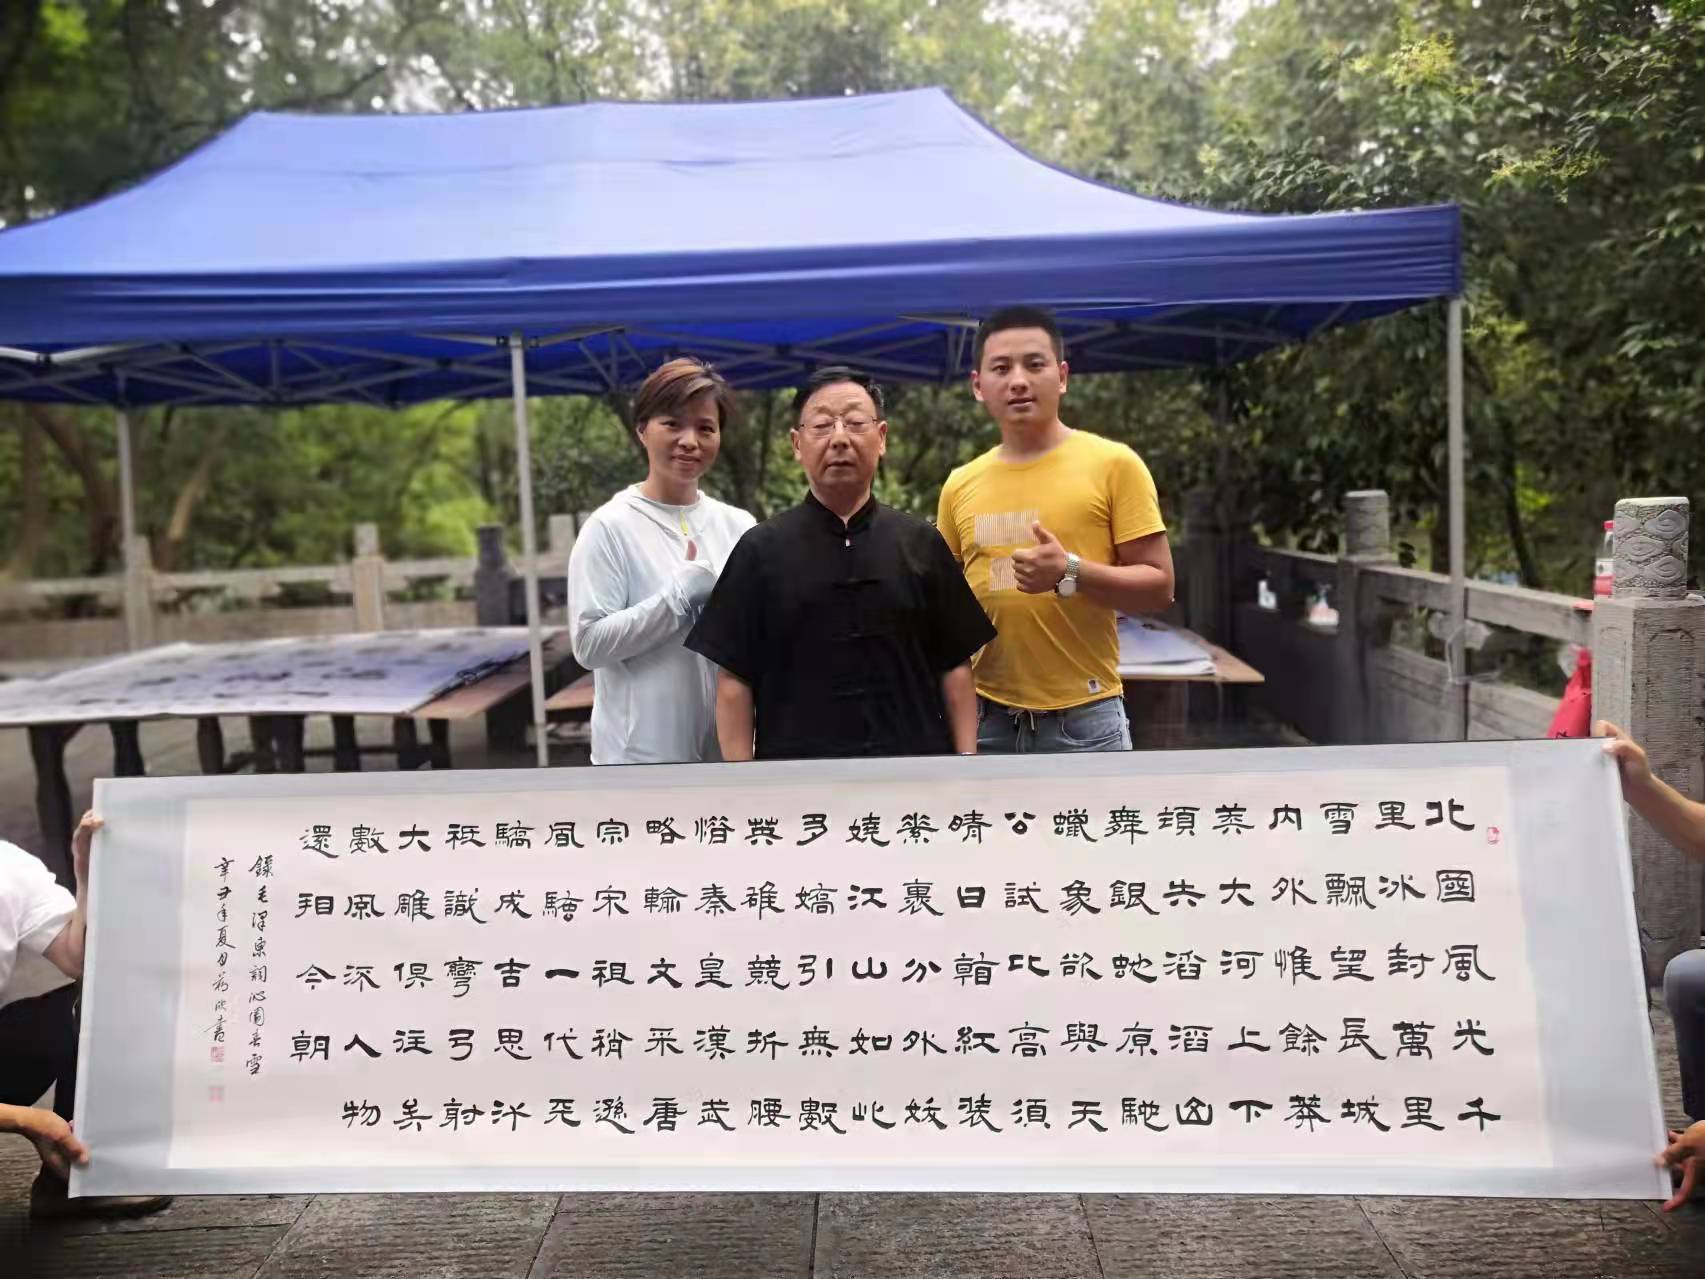 北國風光千
里冰封萬里
雪飄望長城
内外惟餘莽
莽大河上下
頓失滔滔山
舞銀蛇原馳
蠟象欲與天
公試比高須
晴日看紅装
素裹分外妖
嬈江山如此
多嬌引無數
英雄競折腰
惜秦皇漢武
略輸文采唐
宗宋祖稍遜
風騷一代天
驕成吉思汗
祗識彎弓射
大雕俱往矣
數風流人物
還看今朝
錄毛澤東詞沁園春雪
辛丑年夏月書